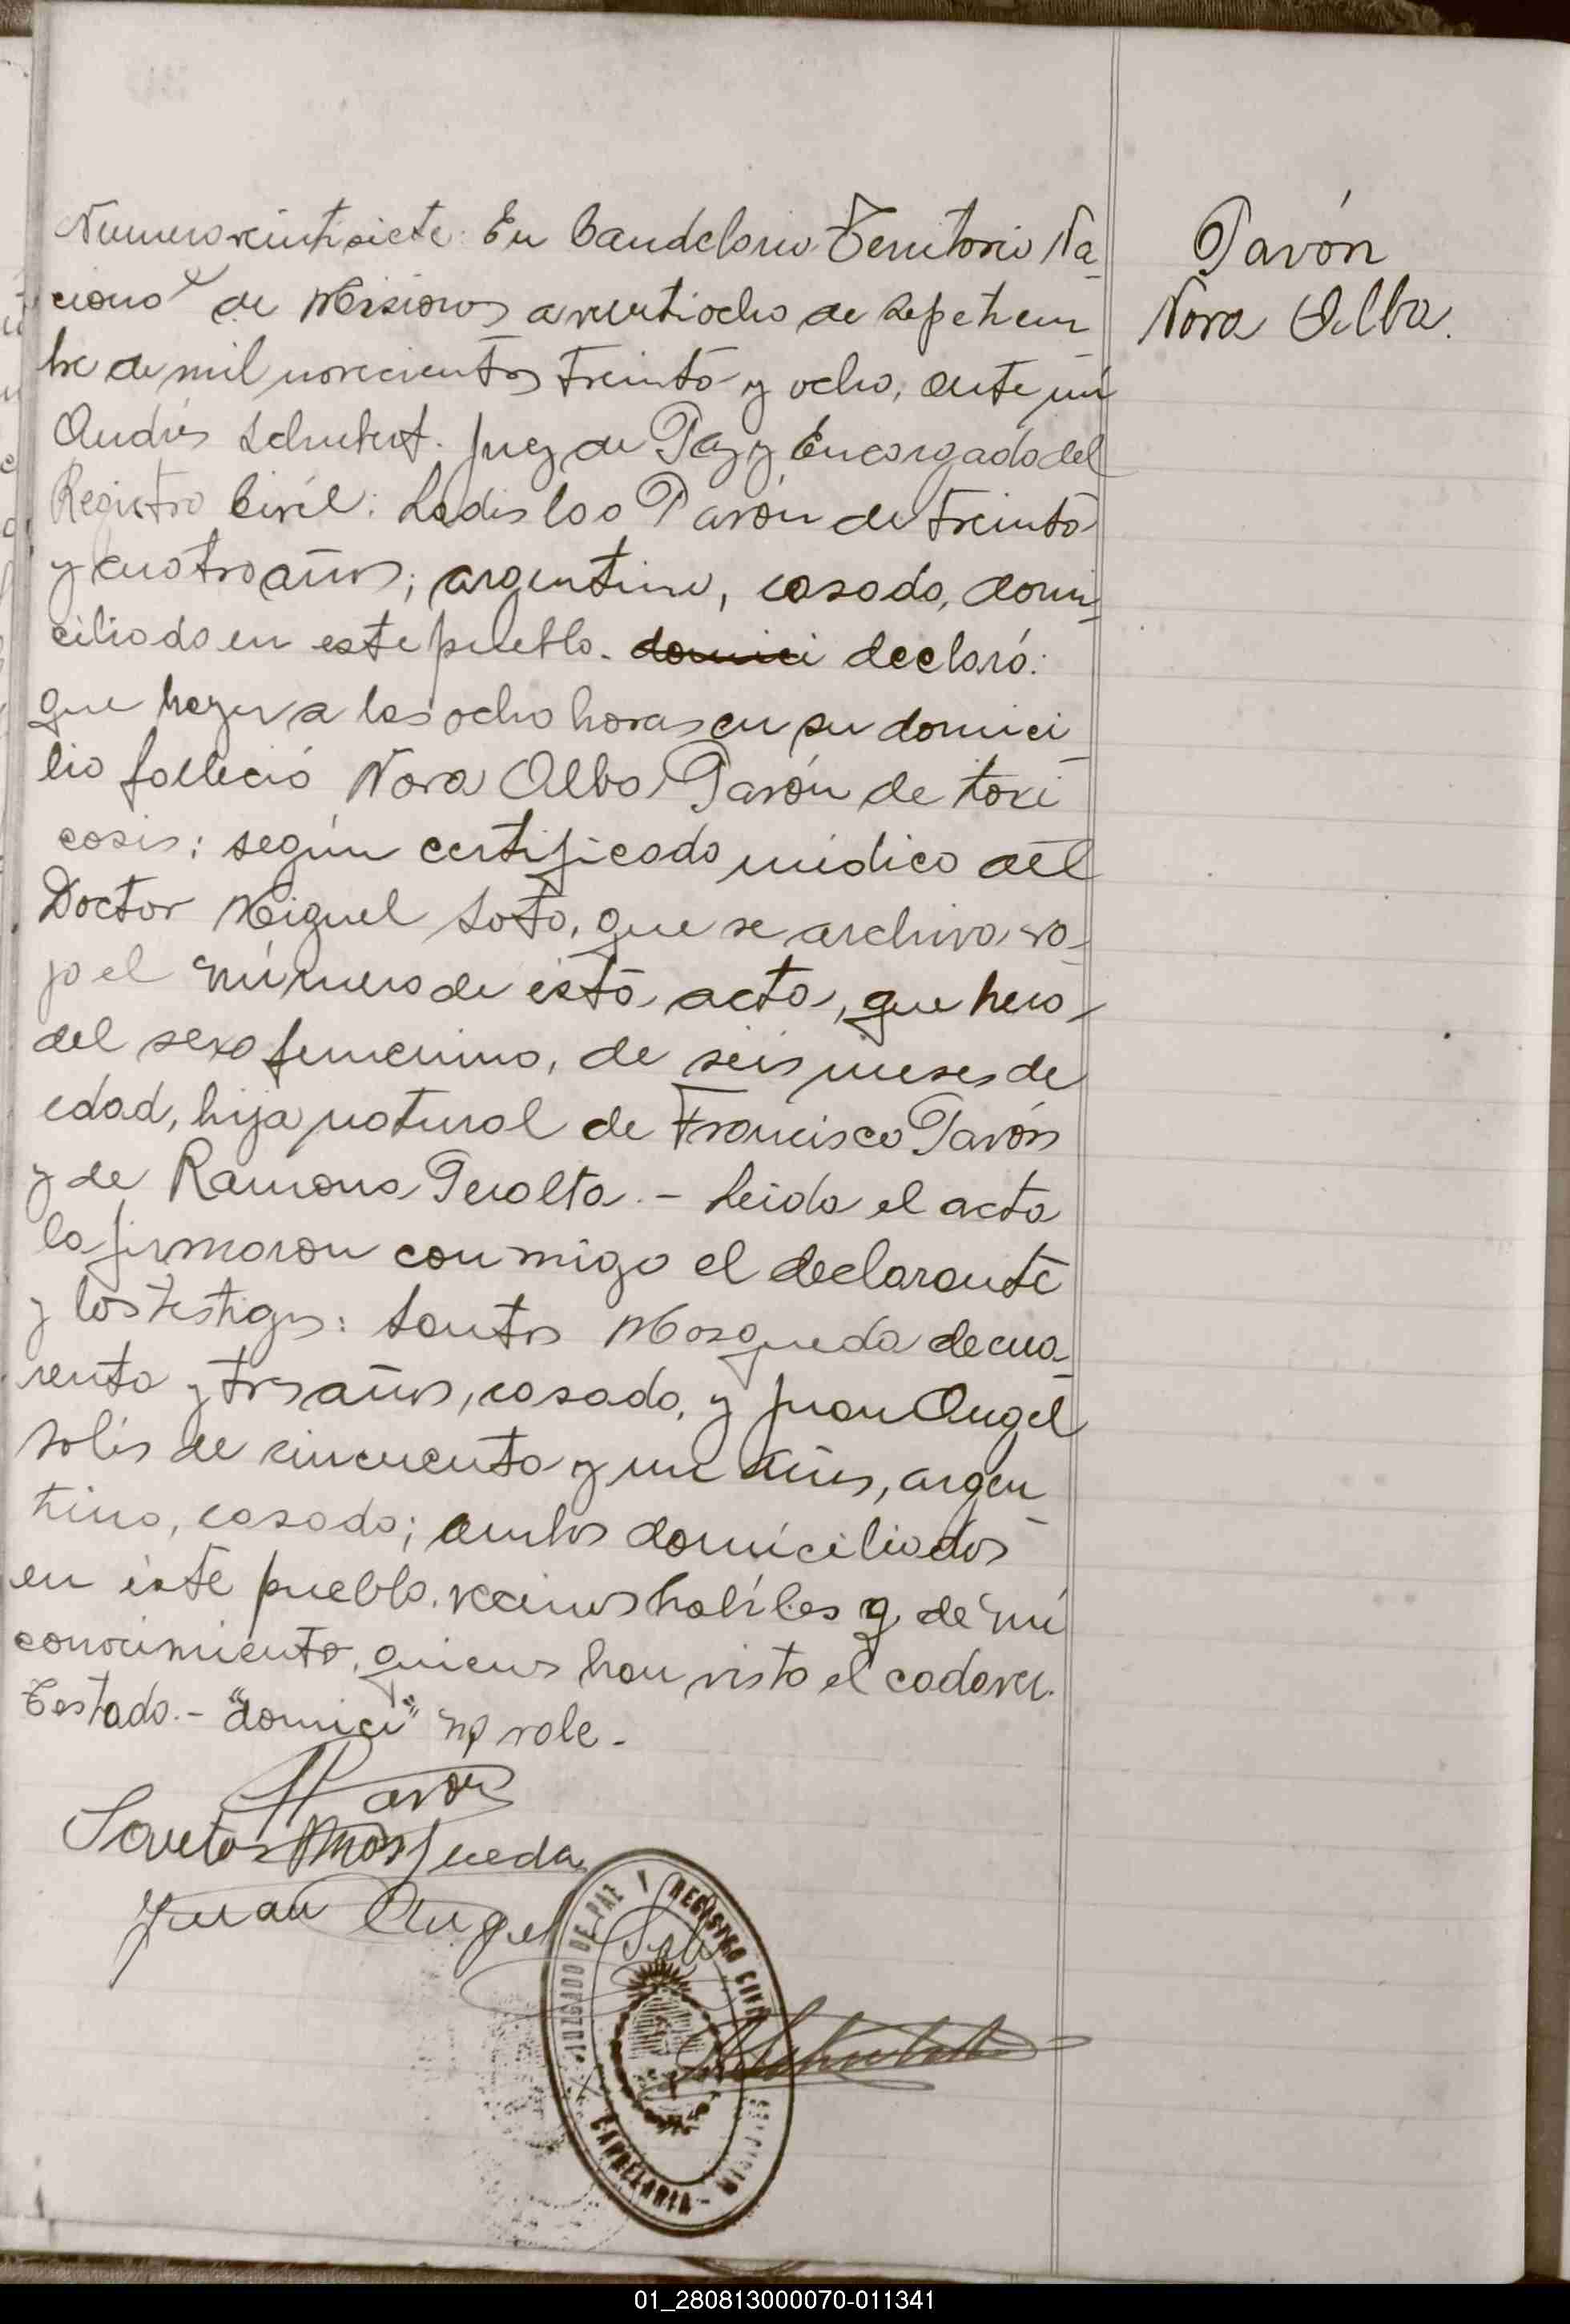 Numero veintisiete: En Candelaria Territorio Na-
cional de Misiones a veintiocho de Sepetiem-
bre de mil novecientos treinta y ocho, ante mí
Andrés Schubert. Juez de Paz y Encargado del
Registro Civíl: Ladislao Pavón de treinta
y cuatro años; argentino, casado, domi-
ciliado en este pueblo. domici declaró:
que a las ocho horas en su domici-
lio falleció Nora Alba Pavón de toxi-
cosis; según certificado médico del
Doctor Miguel Soto, que se archiva va-
jo el número de ésta acta, que hera
del sexo femenino, de seis meses de
edad, hija natural de Francisco Pavón
y de Ramona Peralta. - Leida el acta
la firmaron conmigo el declarante
y los testigos: Santos Mosqueda de cua-
renta y tres años, casado, y Juan Angel
Solís de cincuenta y un años, argen-
tino, casado; ambos domiciliados
en éste pueblo. vecinos habíles y de mi
conocimiento, quienes han visto el cadaver.
Testado. - "domici" no vale. -
Pavón
Nora Alba.
Pavón
Santos Mosqueda
Juan Angel Solis
JUZGADO DE PAZ Y REGISTRO CIVIL
CANDELARIA
01_280813000070-011341